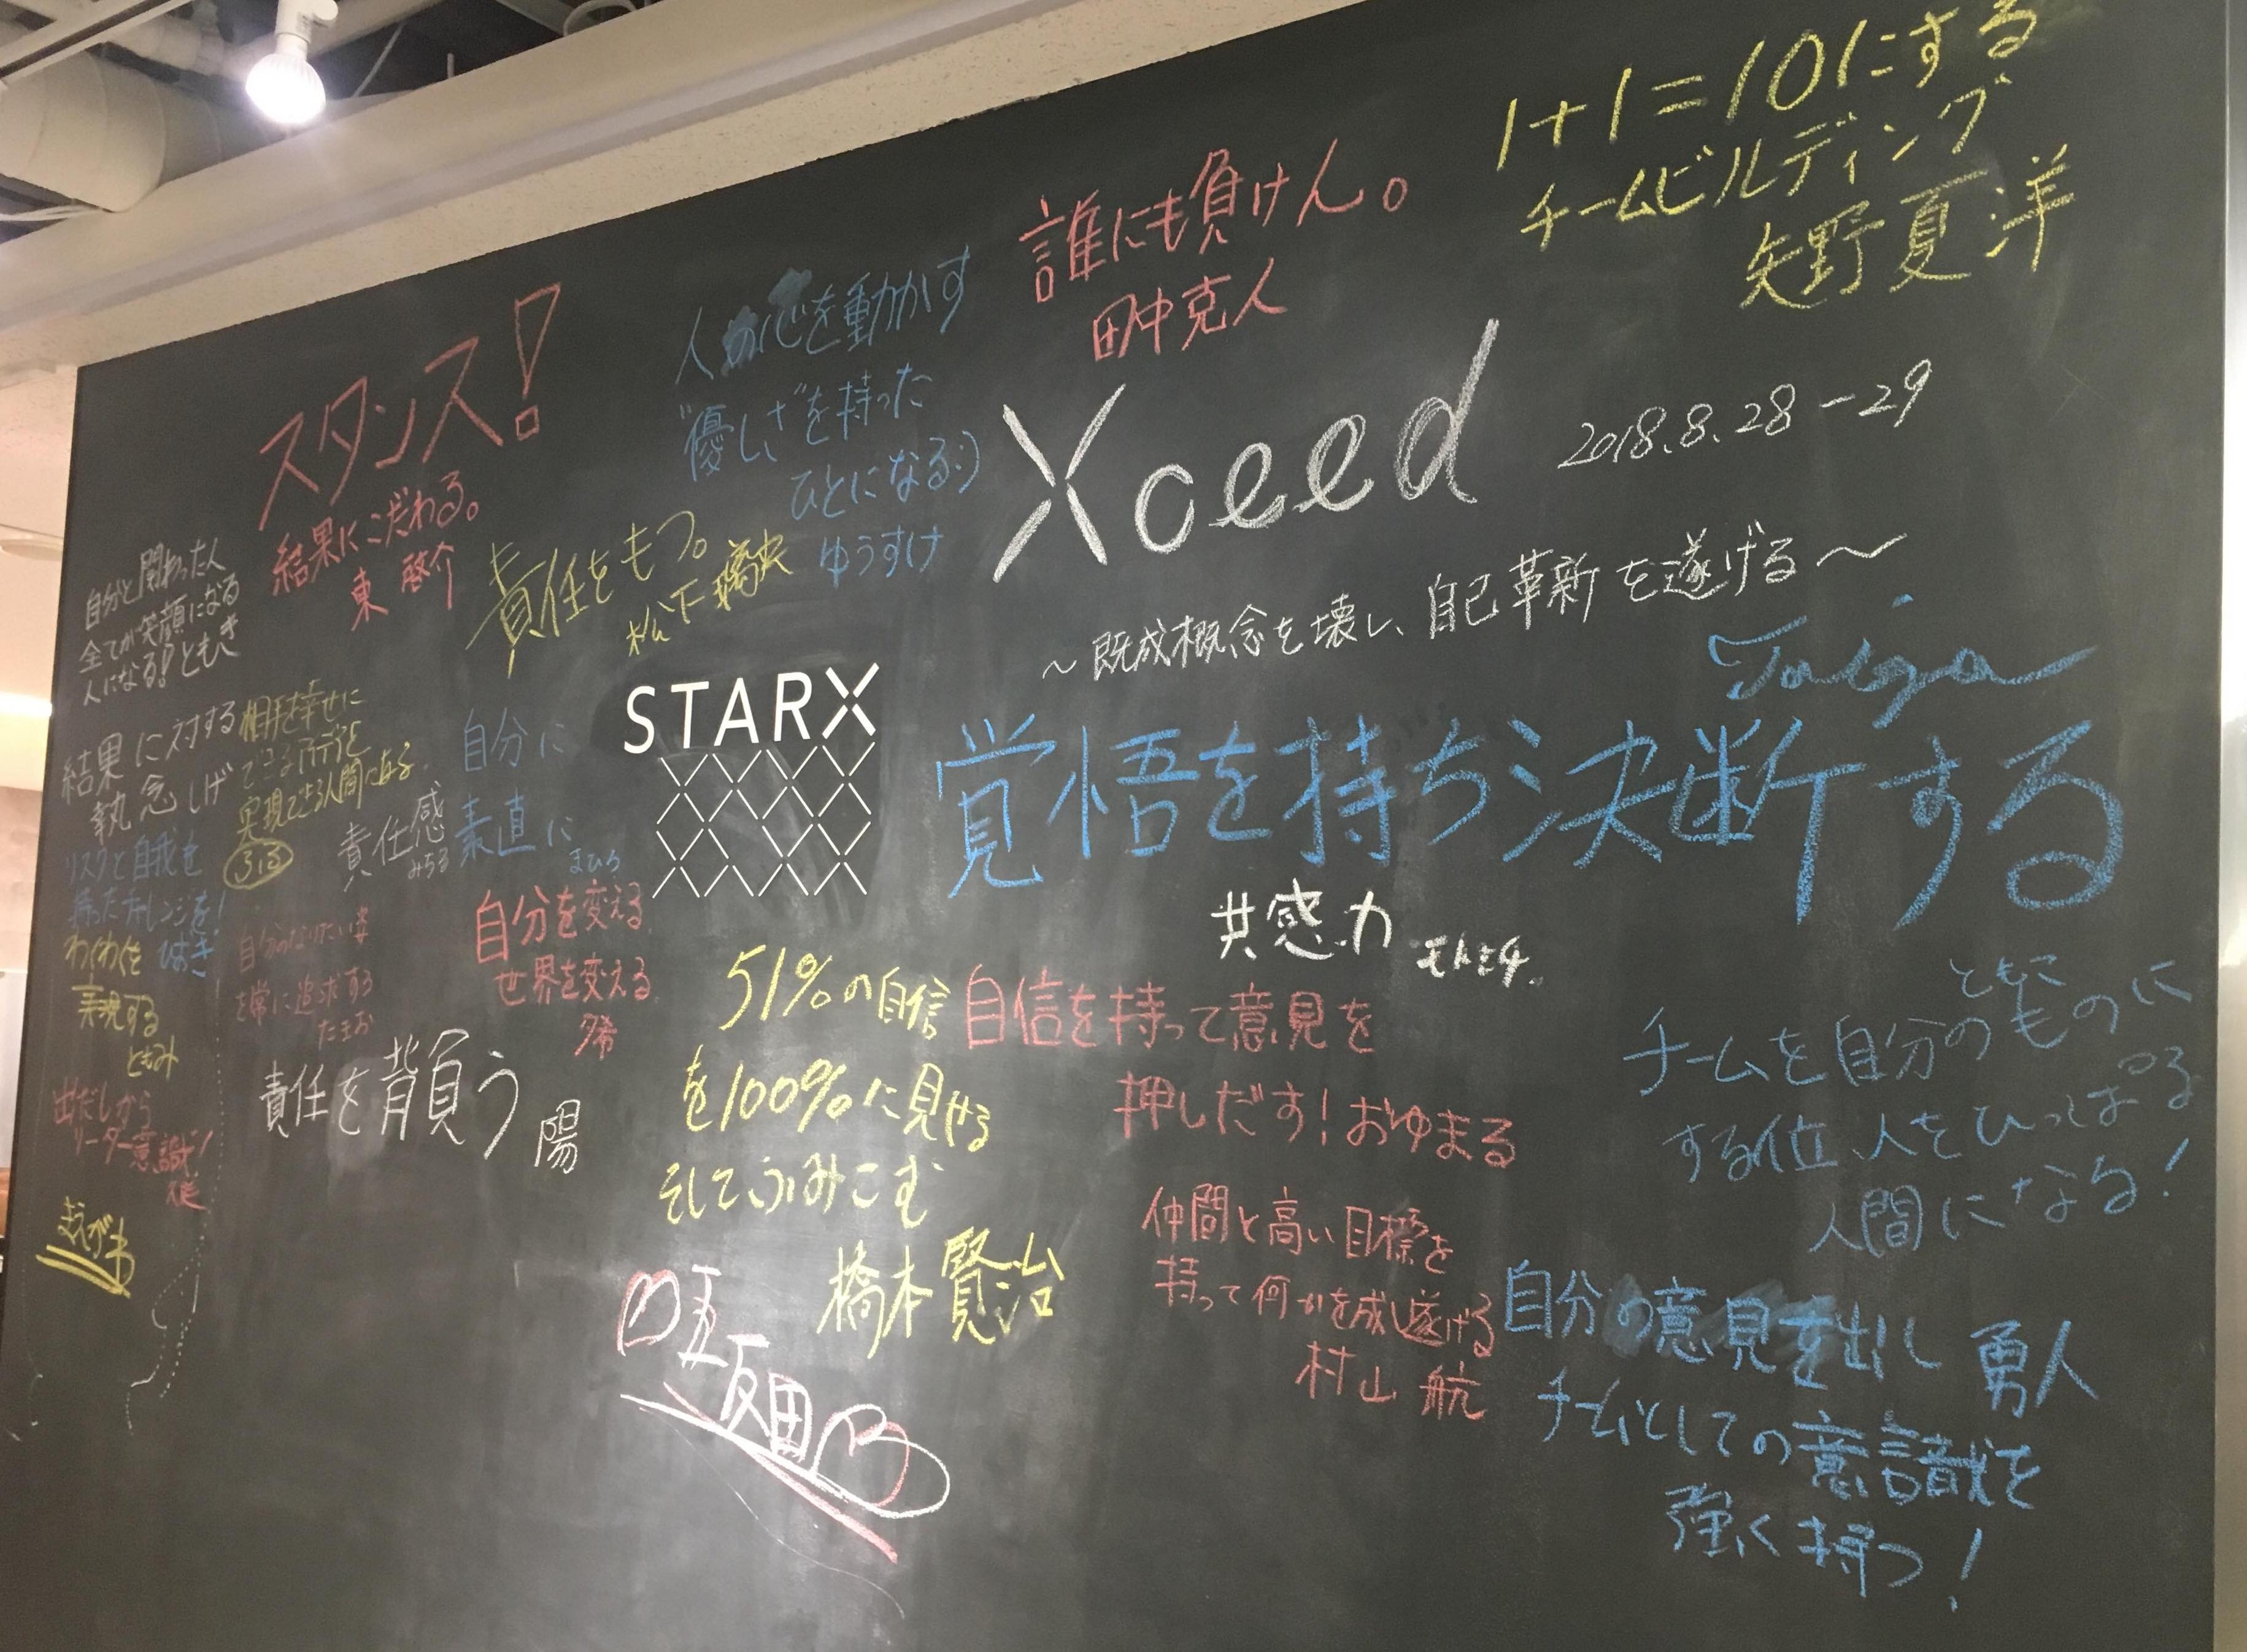 1+1=10にする
チームビルディング
矢野夏洋
誰にも負けん。
田中克人
人の心を動かす
"優しさ"を持った
ひとになる:)
ゆうすけ
スタンス!
結果にこだわる。
東 啓介
責任をもつ。
松下
Xceed
2018.8.28-29
~既成概念を壊し、自己革新を遂げる~
自分と関わった人
全てが笑顔になる
人になる!ともき
STARX
Taiga
覚悟を持ち決断する
結果に対する
執念 しげ
相手を幸せに
できるアイデアを
実現できる人間になる
責任感
みちる
自分に
素直に
まひろ
リスクと自我を
持ったチャレンジを!
ひびき
自分のなりたい姿
を常に追求する
たまお
自分を変える
世界を変える
夕希
わくわくを
実現する
ともみ
責任を背負う 陽
出だしから
リーダー意識!
まえがわ
51%の自信
を100%に見せる
そしてふみこむ
橋本賢治
五反田
共感力
自信を持って意見を
押しだす!おゆまる
仲間と高い目標を
持って何かを成し遂げる
村山 航
ともこ
チームを自分のものに
する位、人をひっぱる
人間になる!
自分の意見を出し 勇人
チームとしての意識を
強く持つ!